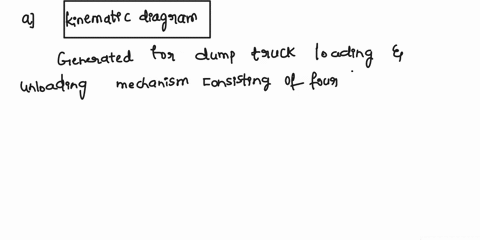 a] kinematic diagram
Generated for dump truck loading &
unloading mechanism consisting of four